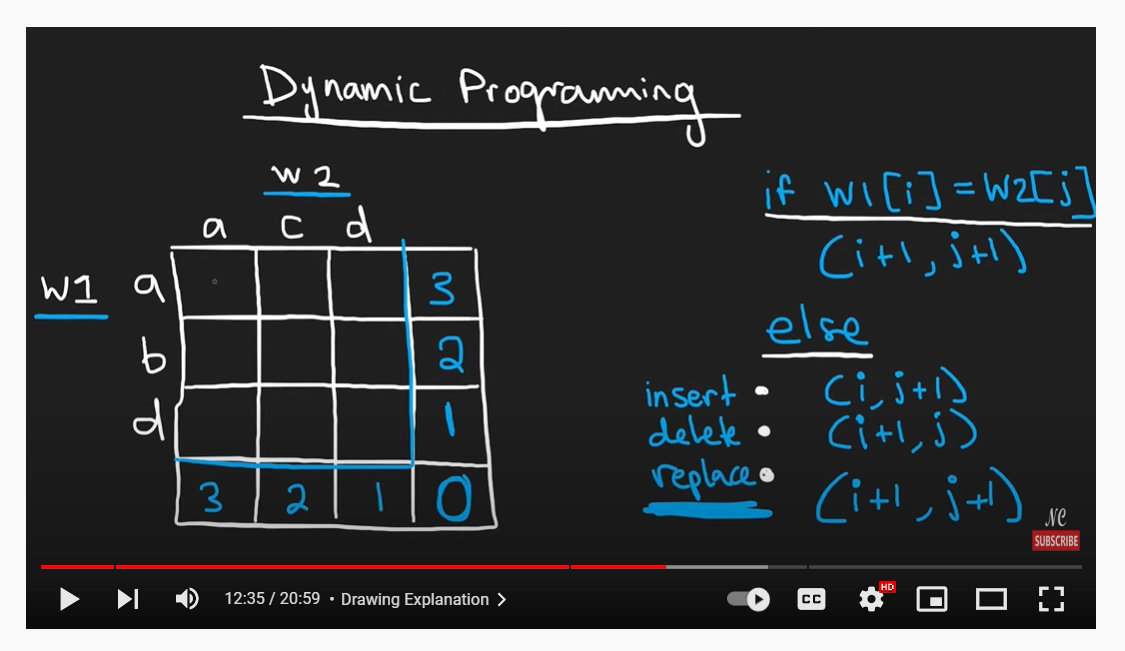 Dynamic Programming
W2
a c d
W1 a 3
b 2
d 1
3 2 1 0
if W1[i] = W2[j]
(i+1, j+1)
else
insert • (i, j+1)
delete • (i+1, j)
replace • (i+1, j+1)
NC
SUBSCRIBE
12:35 / 20:59 • Drawing Explanation >
CC
HD